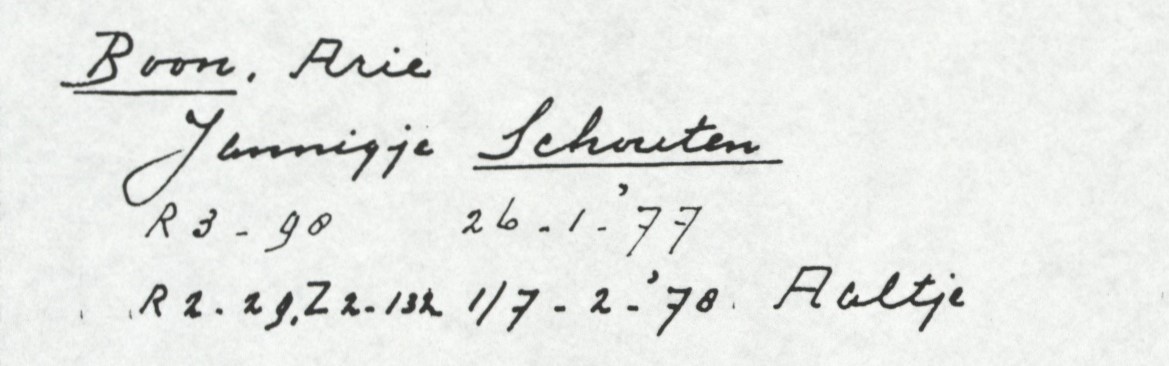 Boon, Arie
Jannigje Schouten
R 3 - 98 26-1-'77
R 2 - 29, Z 2-132 1/7-2-'78. Aaltje